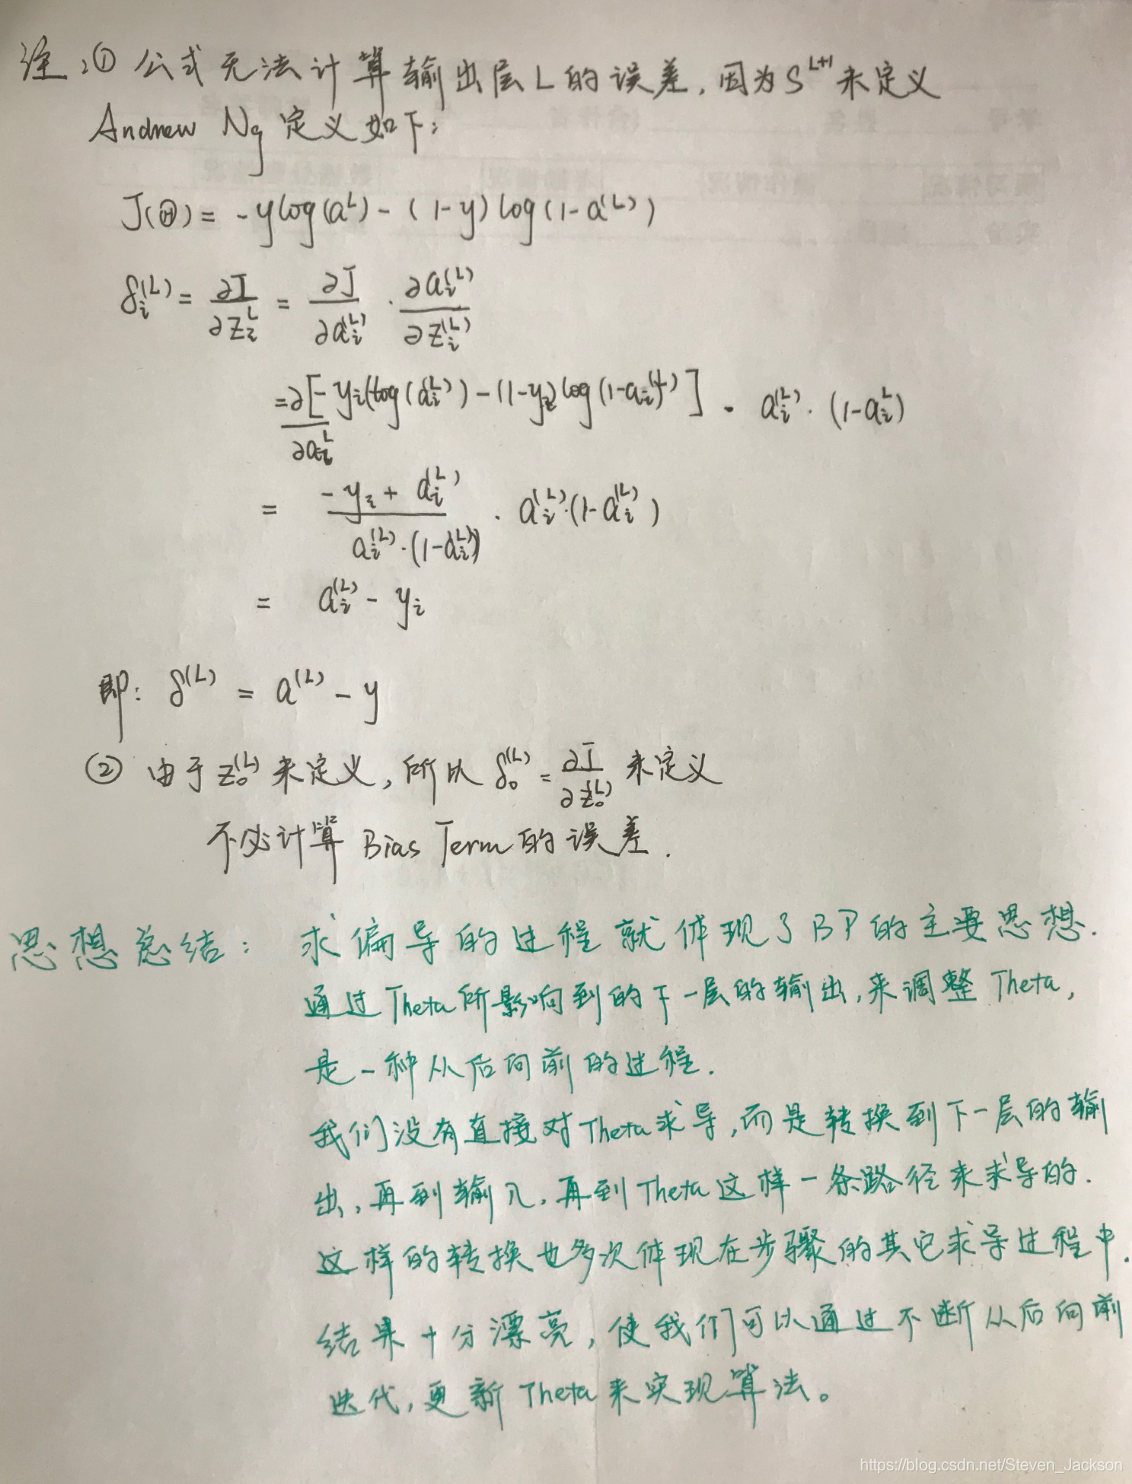 注:① 公式无法计算输出层L的误差,因为S^{L+1}未定义
Andrew Ng 定义如下:
J(Θ) = -ylog(a^L) - (1-y)log(1-a^{(L)})
δ_i^{(L)} = ∂J/∂z_i^L = ∂J/∂a_i^{(L)} · ∂a_i^{(L)}/∂z_i^{(L)}
= ∂[-y_i(log(a_i^{(L)}) - (1-y_i)log(1-a_i^{(L)})]/∂a_i^L · a_i^{(L)} · (1-a_i^L)
= (-y_i + a_i^{(L)})/(a_i^{(L)}·(1-a_i^{(L)})) · a_i^{(L)}·(1-a_i^{(L)})
= a_i^{(L)} - y_i
即: δ^{(L)} = a^{(L)} - y
② 由于z_0^{(L)}未定义,所以 δ_0^{(L)} = ∂J/∂z_0^{(L)} 未定义
不必计算 Bias Term的误差.
思想总结: 求偏导的过程就体现了BP的主要思想.
通过Theta所影响到的下一层的输出,来调整Theta,
是一种从后向前的过程.
我们没有直接对Theta求导,而是转换到下一层的输
出,再到输入,再到Theta这样一条路径来求导的.
这样的转换也多次体现在步骤的其它求导过程中.
结果十分漂亮,使我们可以通过不断从后向前
迭代,更新Theta来实现算法。
https://blog.csdn.net/Steven_Jackson